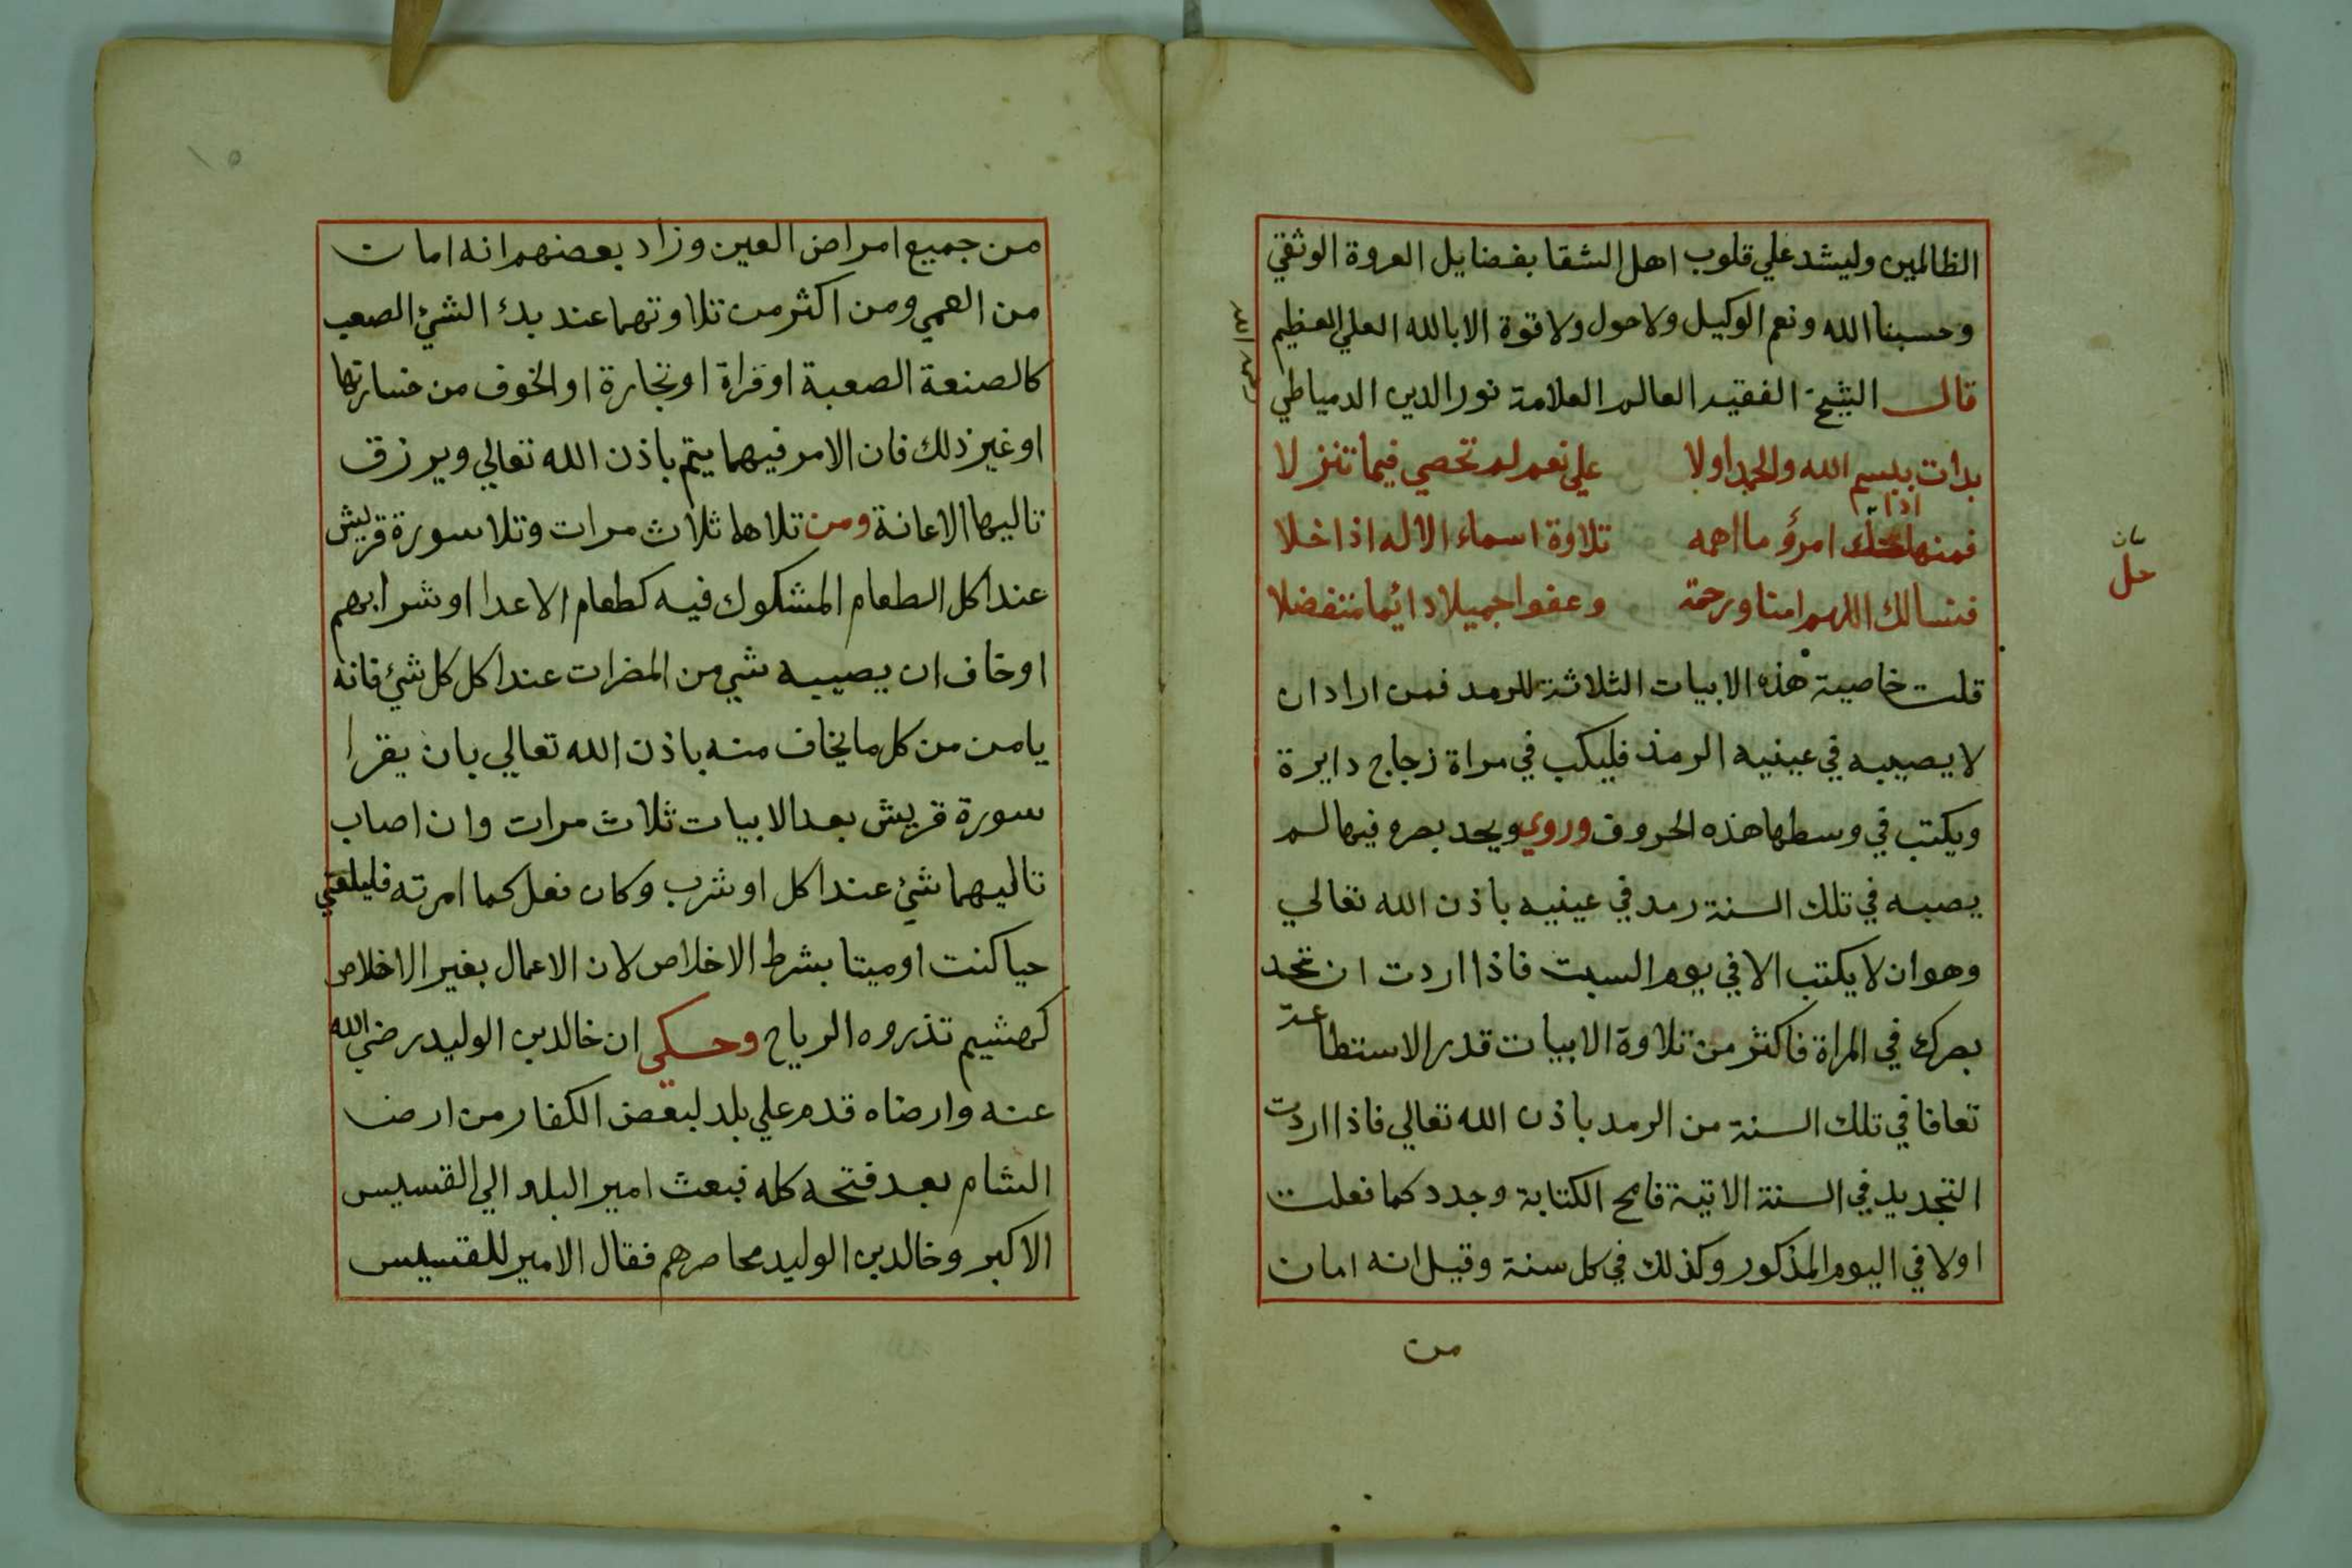 الظالمين وليشد علي قلوب اهل الشقا بفضايل العروة الوثقي
وحسبنا الله ونعم الوكيل ولا حول ولا قوة الا بالله العلي العظيم
قال الشيخ الفقيه العالم العلامة نور الدين الدمياطي
بدات ببسم الله والحمد اولا علي نعم لم تحصي فيما تنزلا
اذا
فمنها امرؤ ما اهمه تلاوة اسماء الاله اذا خلا
فنسالك اللهم امنا ورحمة وعفوا جميلا دائما متفضلا
قلت خاصية هذه الابيات الثلاثة للرمد فمن اراد ان
لا يصيبه في عينيه الرمد فليكب في مراة زجاج دايرة
ويكتب في وسطها هذه الحروف وروي ويحد بصره فيها لم
يصبه في تلك السنة رمد في عينيه باذن الله تعالي
وهو ان لا يكتب الا في يوم السبت فاذا اردت ان تحد
بصرك في المراة فاكثر من تلاوة الابيات قدر الاستطاعة
تعافا في تلك السنة من الرمد باذن الله تعالي فاذا اردت
التجديد في السنة الاتية فامح الكتابة وجدد كما فعلت
اولا في اليوم المذكور وكذلك في كل سنة وقيل انه امان
من
حل
من جميع امراض العين وزاد بعضهم انه امان
من العمي ومن اكثر من تلاوتهما عند بدء الشئ الصعب
كالصنعة الصعبة او قراة او تجارة او الخوف من خسارتها
او غير ذلك فان الامر فيهما يتم باذن الله تعالي ويرزق
تاليها الاعانة ومن تلاها ثلاث مرات وتلا سورة قريش
عند اكل الطعام المشكوك فيه كطعام الاعدا او شرابهم
او خاف ان يصيبه شي من المضرات عند اكل كل شئ فانه
يامن من كل ما يخاف منه باذن الله تعالي بان يقرا
سورة قريش بعد الابيات ثلاث مرات وان اصاب
تاليهما شئ عند اكل او شرب وكان فعل كما امرته فليلقني
حيا كنت او ميتا بشرط الاخلاص لان الاعمال بغير الاخلاص
كهشيم تذروه الرياح وحكي ان خالد بن الوليد رضي الله
عنه وارضاه قدم علي بلد لبعض الكفار من ارض
الشام بعد فتحه كله فبعث امير البلد الي القسيس
الاكبر وخالد بن الوليد محاصرهم فقال الامير للقسيس